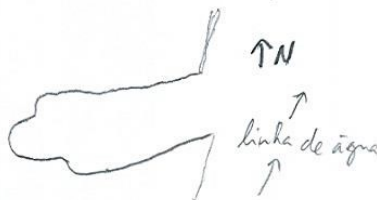 ↑N
linha de água